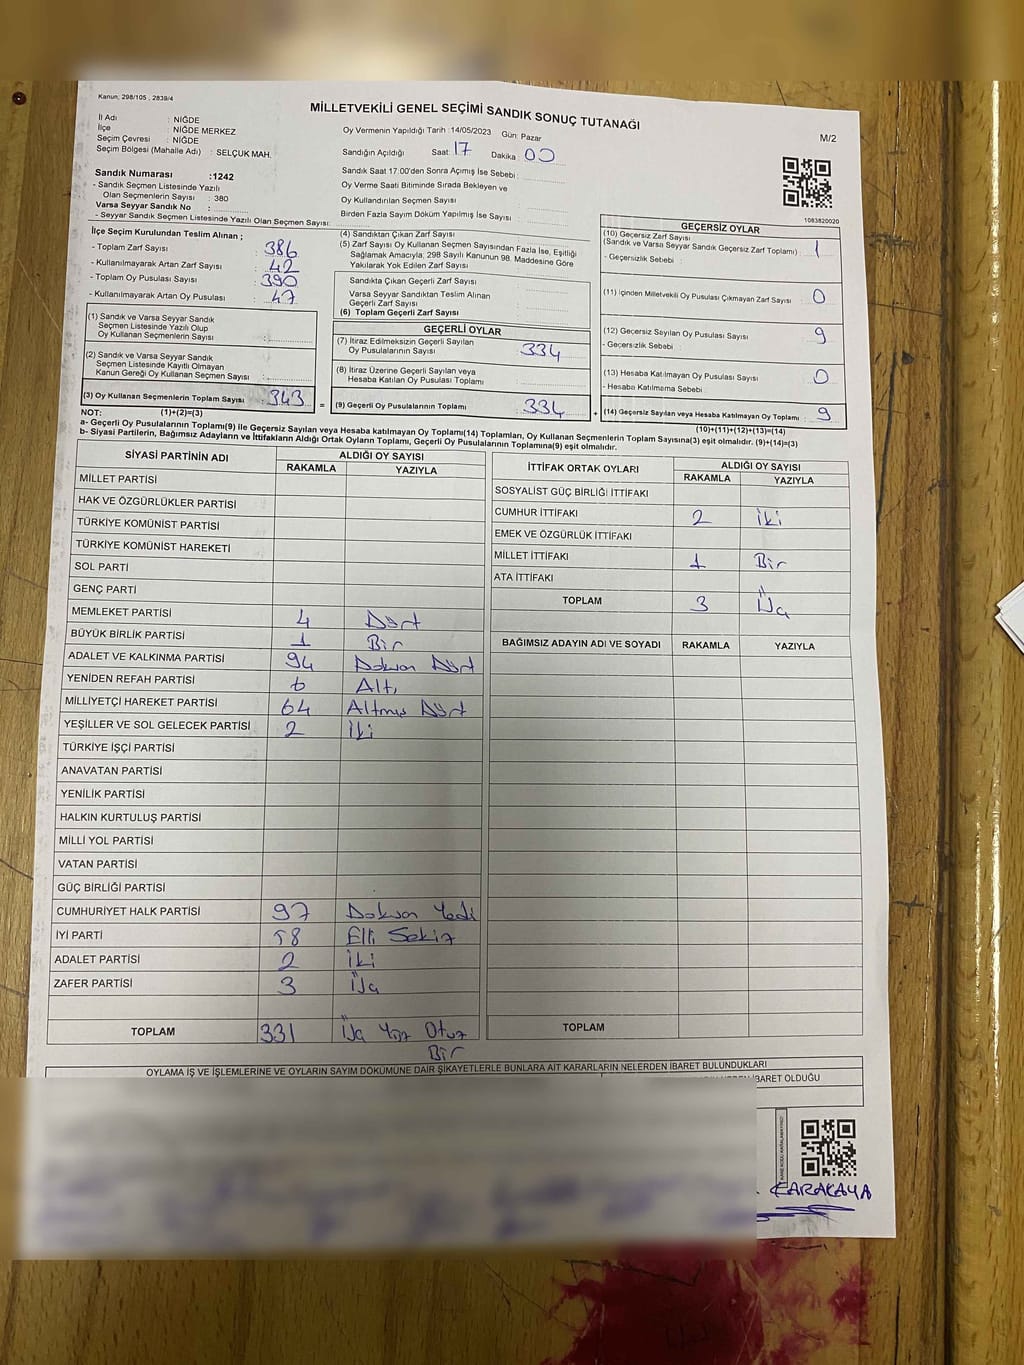 Kanun; 298/105 , 2839/4
MİLLETVEKİLİ GENEL SEÇİMİ SANDIK SONUÇ TUTANAĞI
M/2
İl Adı : NİĞDE
İlçe : NİĞDE MERKEZ
Seçim Çevresi : NİĞDE
Seçim Bölgesi (Mahalle Adı) : SELÇUK MAH.
Oy Vermenin Yapıldığı Tarih : 14/05/2023 Gün: Pazar
Sandığın Açıldığı Saat: 17 Dakika: 00
Sandık Saat 17:00'den Sonra Açımış İse Sebebi :
Oy Verme Saati Bitiminde Sırada Bekleyen ve
Oy Kullandırılan Seçmen Sayısı :
Birden Fazla Sayım Döküm Yapılmış İse Sayısı :
Sandık Numarası :1242
- Sandık Seçmen Listesinde Yazılı
Olan Seçmenlerin Sayısı : 380
Varsa Seyyar Sandık No :
- Seyyar Sandık Seçmen Listesinde Yazılı Olan Seçmen Sayısı:
1083820020
İlçe Seçim Kurulundan Teslim Alınan ;
- Toplam Zarf Sayısı : 386
- Kullanılmayarak Artan Zarf Sayısı : 42
- Toplam Oy Pusulası Sayısı : 390
- Kullanılmayarak Artan Oy Pusulası : 47
(1) Sandık ve Varsa Seyyar Sandık
Seçmen Listesinde Yazılı Olup
Oy Kullanan Seçmenlerin Sayısı :
(2) Sandık ve Varsa Seyyar Sandık
Seçmen Listesinde Kayıtlı Olmayan
Kanun Gereği Oy Kullanan Seçmen Sayısı :
(3) Oy Kullanan Seçmenlerin Toplam Sayısı : 343
(4) Sandıktan Çıkan Zarf Sayısı
(5) Zarf Sayısı Oy Kullanan Seçmen Sayısından Fazla İse, Eşitliği
Sağlamak Amacıyla; 298 Sayılı Kanunun 98. Maddesine Göre
Yakılarak Yok Edilen Zarf Sayısı
Sandıkta Çıkan Geçerli Zarf Sayısı :
Varsa Seyyar Sandıktan Teslim Alınan
Geçerli Zarf Sayısı :
(6) Toplam Geçerli Zarf Sayısı :
GEÇERLİ OYLAR
(7) İtiraz Edilmeksizin Geçerli Sayılan
Oy Pusulalarının Sayısı : 334
(8) İtiraz Üzerine Geçerli Sayılan veya
Hesaba Katılan Oy Pusulası Toplamı :
= (9) Geçerli Oy Pusulalarının Toplamı : 334
GEÇERSİZ OYLAR
(10) Geçersiz Zarf Sayısı
(Sandık ve Varsa Seyyar Sandık Geçersiz Zarf Toplamı) : 1
- Geçersizlik Sebebi :
(11) İçinden Milletvekili Oy Pusulası Çıkmayan Zarf Sayısı : 0
(12) Geçersiz Sayılan Oy Pusulası Sayısı : 9
- Geçersizlik Sebebi :
(13) Hesaba Katılmayan Oy Pusulası Sayısı : 0
- Hesaba Katılmama Sebebi
+ (14) Geçersiz Sayılan veya Hesaba Katılmayan Oy Toplamı : 9
NOT: (1)+(2)=(3)
(10)+(11)+(12)+(13)=(14)
a- Geçerli Oy Pusulalarının Toplamı(9) ile Geçersiz Sayılan veya Hesaba Katılmayan Oy Toplamı(14) Toplamları, Oy Kullanan Seçmenlerin Toplam Sayısına(3) eşit olmalıdır. (9)+(14)=(3)
b- Siyasi Partilerin, Bağımsız Adayların ve İttifakların Aldığı Ortak Oyların Toplamı, Geçerli Oy Pusulalarının Toplamına(9) eşit olmalıdır.
SİYASİ PARTİNİN ADI
ALDIĞI OY SAYISI
RAKAMLA YAZIYLA
MİLLET PARTİSİ
HAK VE ÖZGÜRLÜKLER PARTİSİ
TÜRKİYE KOMÜNİST PARTİSİ
TÜRKİYE KOMÜNİST HAREKETİ
SOL PARTİ
GENÇ PARTİ
MEMLEKET PARTİSİ 4 Dört
BÜYÜK BİRLİK PARTİSİ 1 Bir
ADALET VE KALKINMA PARTİSİ 94 Doksan Dört
YENİDEN REFAH PARTİSİ 6 Altı
MİLLİYETÇİ HAREKET PARTİSİ 64 Altmış Dört
YEŞİLLER VE SOL GELECEK PARTİSİ 2 İki
TÜRKİYE İŞÇİ PARTİSİ
ANAVATAN PARTİSİ
YENİLİK PARTİSİ
HALKIN KURTULUŞ PARTİSİ
MİLLİ YOL PARTİSİ
VATAN PARTİSİ
GÜÇ BİRLİĞİ PARTİSİ
CUMHURİYET HALK PARTİSİ 97 Doksan Yedi
İYİ PARTİ 58 Elli Sekiz
ADALET PARTİSİ 2 İki
ZAFER PARTİSİ 3 Üç
TOPLAM 331 Üç Yüz Otuz
Bir
İTTİFAK ORTAK OYLARI
ALDIĞI OY SAYISI
RAKAMLA YAZIYLA
SOSYALİST GÜÇ BİRLİĞİ İTTİFAKI
CUMHUR İTTİFAKI 2 İki
EMEK VE ÖZGÜRLÜK İTTİFAKI
MİLLET İTTİFAKI 1 Bir
ATA İTTİFAKI
TOPLAM 3 Üç
BAĞIMSIZ ADAYIN ADI VE SOYADI RAKAMLA YAZIYLA
TOPLAM
OYLAMA İŞ VE İŞLEMLERİNE VE OYLARIN SAYIM DÖKÜMÜNE DAİR ŞİKAYETLERLE BUNLARA AİT KARARLARIN NELERDEN İBARET BULUNDUKLARI
İBARET OLDUĞU
KARAKAYA